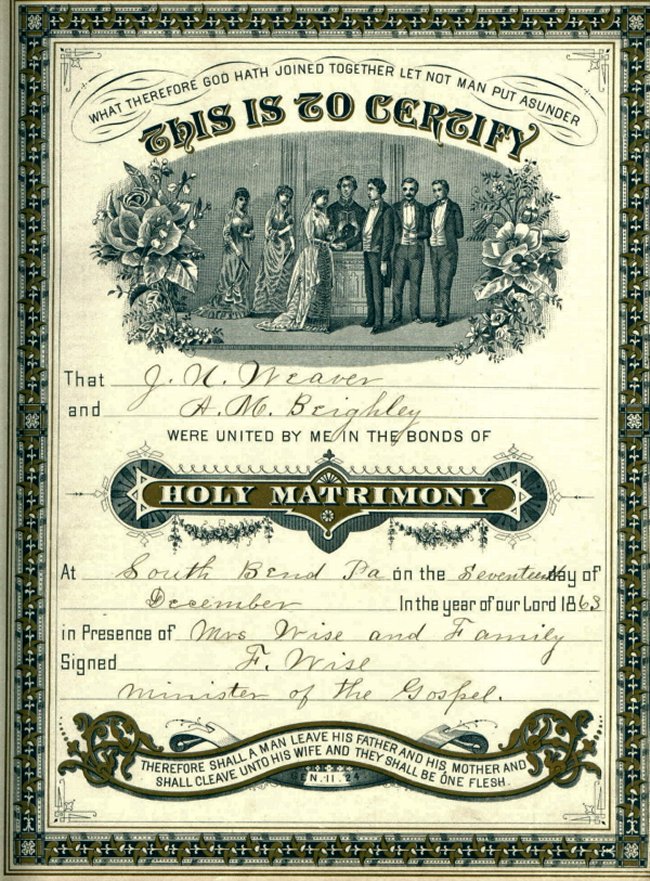 WHAT THEREFORE GOD HATH JOINED TOGETHER LET NOT MAN PUT ASUNDER
THIS IS TO CERTIFY
That J. U. Weaver
and A. M. Beighley
WERE UNITED BY ME IN THE BONDS OF
HOLY MATRIMONY
At South Bend Pa on the Seventeenth day of
December In the year of our Lord 1863
in Presence of Mrs Wise and Family
Signed F. Wise
Minister of the Gospel.
THEREFORE SHALL A MAN LEAVE HIS FATHER AND HIS MOTHER AND
SHALL CLEAVE UNTO HIS WIFE AND THEY SHALL BE ONE FLESH.
GEN. 11. 24